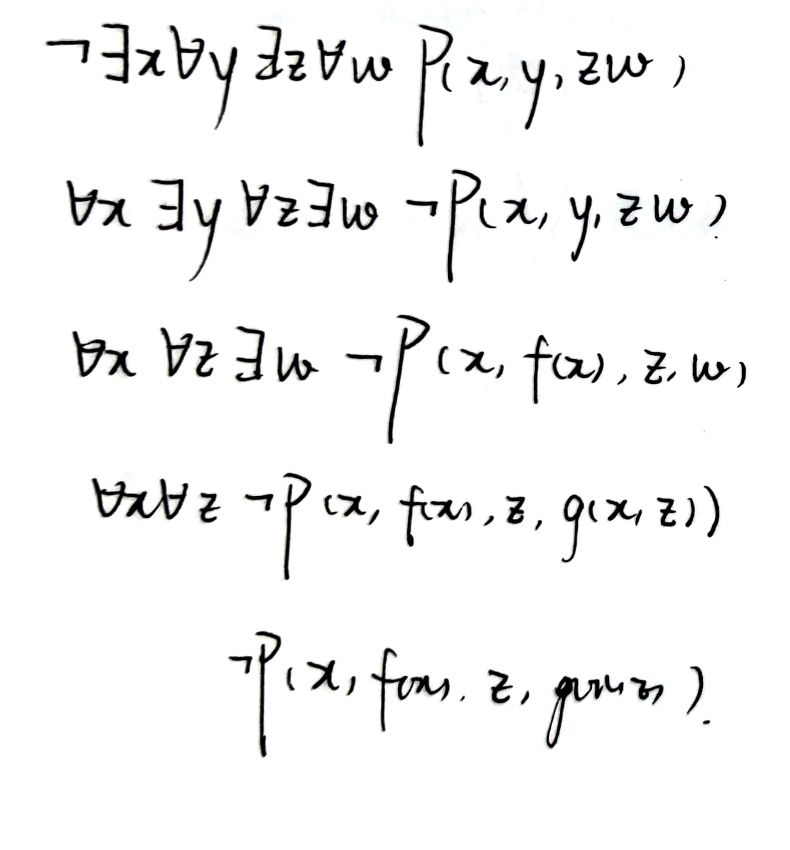 ¬∃x∀y∃z∀w P(x, y, zw)
∀x ∃y ∀z∃w ¬P(x, y, zw)
∀x ∀z ∃w ¬P(x, f(x), z, w)
∀x∀z ¬P(x, f(x), z, g(x, z))
¬P(x, f(x), z, g(x, z)).